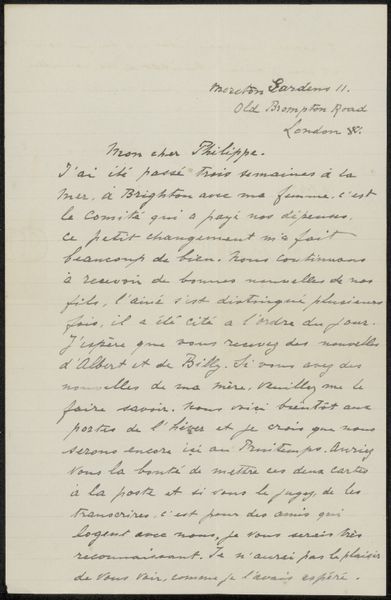 Moreton Gardens 11.
Old Brompton Road
London
Mon cher Philippe.
J'ai été passé trois semaines à la
mer, à Brighton avec ma femme, c'est
le Comité qui a payé nos dépenses,
ce petit changement m'a fait
beaucoup de bien. Nous continuons
à recevoir de bonnes nouvelles de nos
fils, l'ainé s'est distingué plusieurs
fois, il a été cité a l'ordre du jour.
J'espère que vous recevez des nouvelles
d'Albert et de Billy. Si vous avez des
nouvelles de ma mère, veuillez me le
faire savoir. Nous voici bientôt aux
portes de l'hiver et je crois que nous
serons encore ici au Printemps. Auriez
vous la bonté de mettre ces deux cartes
à la poste et si vous le jugez, de les
transcrires, c'est pour des amis qui
logent avec nous, je vous serais très
reconnaissant. Je n'aurai pas le plaisir
de vous voir, comme je l'avais espéré.